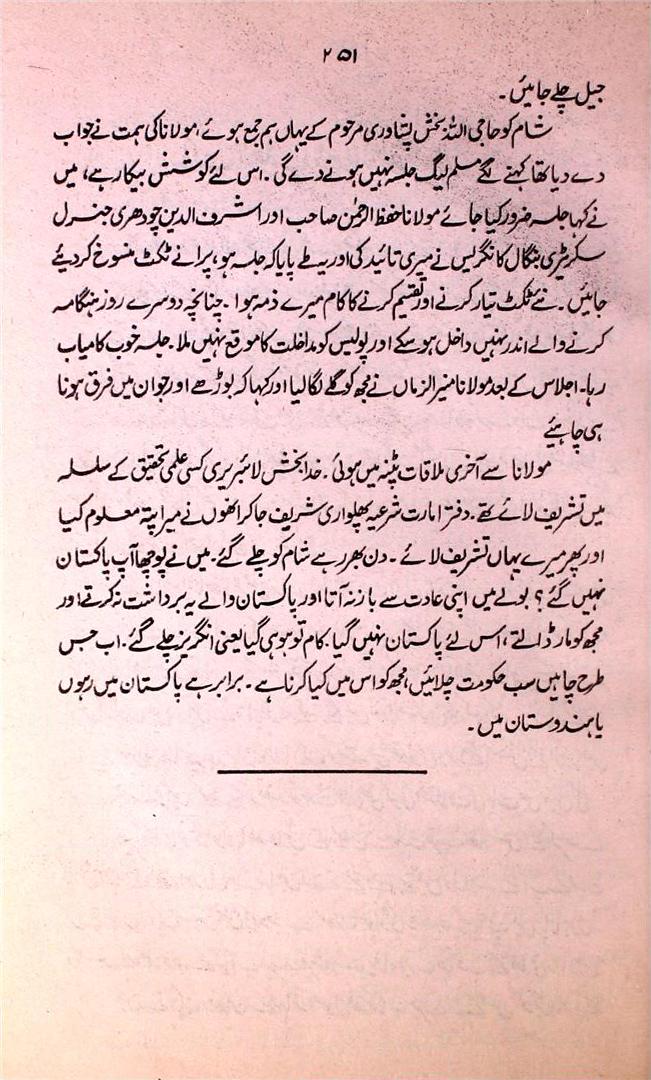 ۲۵۱
جیل چلے جائیں۔
شام کو حاجی اللہ بخش پشاوری مرحوم کے یہاں ہم جمع ہوئے، مولانا کی ہمت نے جواب
دے دیا تھا کہنے لگے مسلم لیگ جلسہ نہیں ہونے دے گی۔ اس لئے کوشش بیکار ہے، میں
نے کہا جلسہ ضرور کیا جائے مولانا حفظ الرحمٰن صاحب اور اشرف الدین چودھری جنرل
سکریٹری بنگال کانگریس نے میری تائید کی اور یہ طے پایا کہ جلسہ ہو، پرانے ٹکٹ منسوخ کر دیئے
جائیں۔ نئے ٹکٹ تیار کرنے اور تقسیم کرنے کا کام میرے ذمہ ہوا۔ چنانچہ دوسرے روز ہنگامہ
کرنے والے اندر نہیں داخل ہو سکے اور پولیس کو مداخلت کا موقع نہیں ملا۔ جلسہ خوب کامیاب
رہا۔ اجلاس کے بعد مولانا منیر الزماں نے مجھ کو گلے لگا لیا اور کہا کہ بوڑھے اور جوان میں فرق ہونا
ہی چاہیئے
مولانا سے آخری ملاقات پٹنہ میں ہوئی۔ خدا بخش لائبریری کسی علمی تحقیق کے سلسلہ
میں تشریف لائے تھے۔ دفتر امارت شرعیہ پھلواری شریف جا کر انھوں نے میرا پتہ معلوم کیا
اور پھر میرے یہاں تشریف لائے۔ دن بھر رہے شام کو چلے گئے۔ میں نے پوچھا آپ پاکستان
نہیں گئے؟ بولے میں اپنی عادت سے باز نہ آتا اور پاکستان والے یہ برداشت نہ کرتے اور
مجھ کو مار ڈالتے، اس لئے پاکستان نہیں گیا۔ کام تو ہو ہی گیا یعنی انگریز چلے گئے۔ اب جس
طرح چاہیں سب حکومت چلائیں، مجھ کو اس میں کیا کرنا ہے۔ برابر ہے پاکستان میں رہوں
یا ہندوستان میں۔